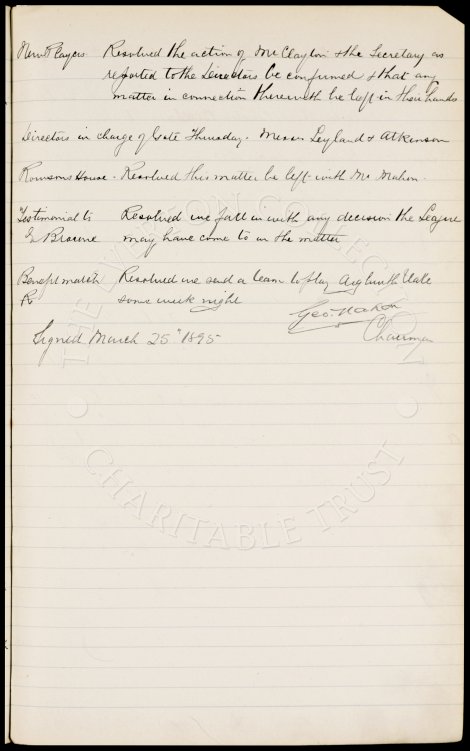 New Players Resolved the action of Mr Clayton & the Secretary as
reported to the Directors be confirmed & that any
matter in connection therewith be left in their hands
Directors in charge of Gate Thursday. Messrs Leyland & Atkinson
House. Resolved this matter be left with Mr Mahon.
Testimonial to Resolved we fall in with any decision the League
Browne may have come to in the matter
Benefit match Resolved we send a team to play Aigburth Vale
some week night
Geo. Mahon
Signed March 25" 1895 Chairman
THE EVERTON COLLECTION
CHARITABLE TRUST